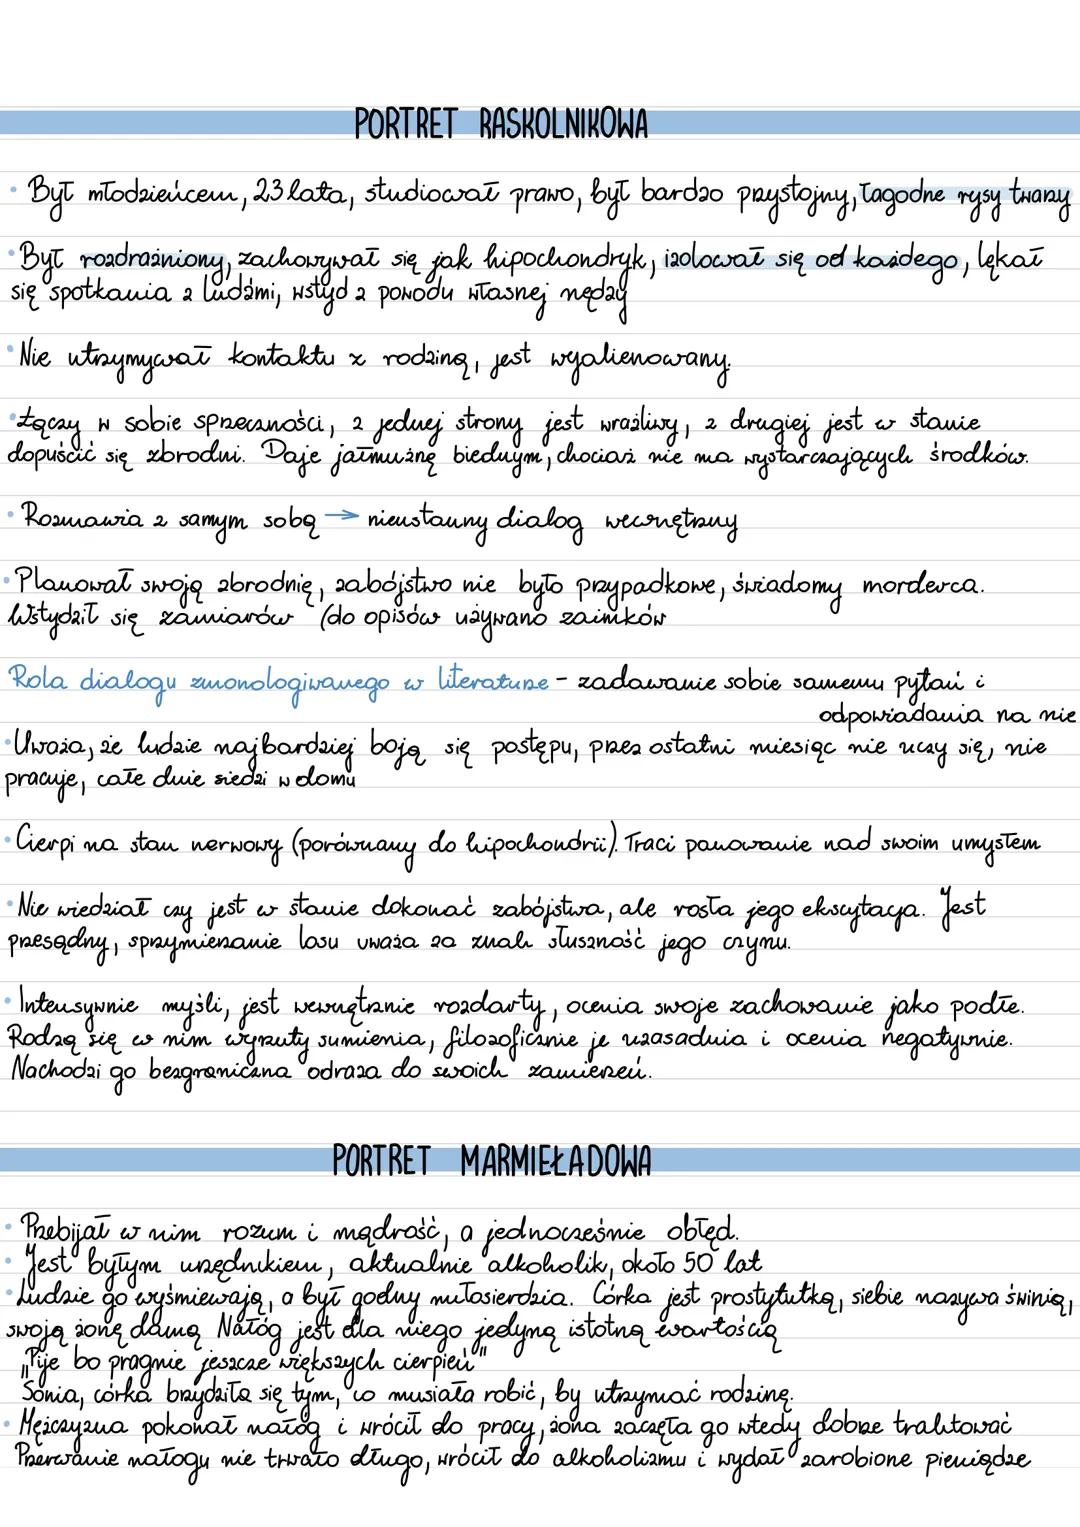 PORTRET RASKOLNIKOWA
• Był młodzieńcem, 23 lata, studiował prawo, był bardzo przystojny, łagodne rysy twarzy
• Był rozdrażniony, zachowywał się jak hipochondryk, izolował się od każdego, lękał
się spotkania z ludźmi, wstyd z powodu własnej nędzy
• Nie utrzymywał kontaktu z rodziną, jest wyalienowany.
• Łączy w sobie sprzeczności, z jednej strony jest wrażliwy, z drugiej jest w stanie
dopuścić się zbrodni. Daje jałmużnę biednym, chociaż nie ma wystarczających środków.
• Rozmawia z samym sobą → nieustanny dialog wewnętrzny
• Planował swoją zbrodnię, zabójstwo nie było przypadkowe, świadomy morderca.
Wstydził się zamiarów (do opisów używano zaimków
Rola dialogu zmonologiwanego w literaturze - zadawanie sobie samemu pytań i
odpowiadania na nie
• Uważa, że ludzie najbardziej boją się postępu, przez ostatni miesiąc nie uczy się, nie
pracuje, całe dnie siedzi w domu
• Cierpi na stan nerwowy (porównany do hipochondrii). Traci panowanie nad swoim umysłem
• Nie wiedział czy jest w stanie dokonać zabójstwa, ale rosła jego ekscytacja. Jest
przesądny, sprzymierzanie losu uważa za znak słuszność jego czynu.
• Intensywnie myśli, jest wewnętrznie rozdarty, ocenia swoje zachowanie jako podłe.
Rodzą się w nim wyrzuty sumienia, filozoficznie je uzasadnia i ocenia negatywnie.
Nachodzi go bezgraniczna odraza do swoich zamierzeń.
PORTRET MARMIEŁADOWA
• Przebijał w nim rozum i mądrość, a jednocześnie obłęd.
• Jest byłym urzędnikiem, aktualnie alkoholik, około 50 lat
• Ludzie go wyśmiewają, a był godny miłosierdzia. Córka jest prostytutką, siebie nazywa świnią,
swoją żonę damą Nałóg jest dla niego jedyną istotną wartością
„Pije bo pragnie jeszcze większych cierpień"
Sonia, córka brzydziła się tym, co musiała robić, by utrzymać rodzinę.
• Mężczyzna pokonał nałóg i wrócił do pracy, żona zaczęła go wtedy dobrze traktować
Przerwanie nałogu nie trwało długo, wrócił do alkoholizmu i wydał zarobione pieniądze